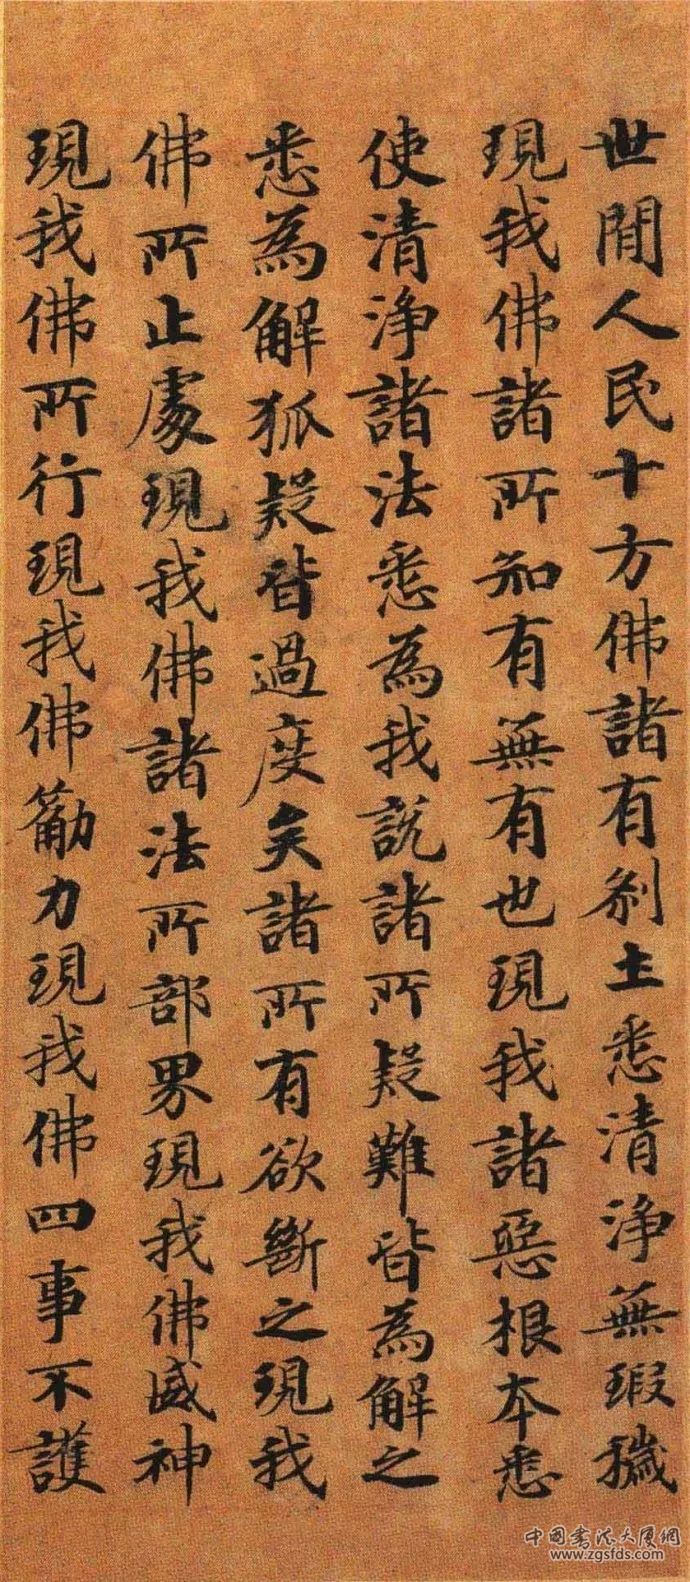 世間人民十方佛諸有刹土悉清淨無瑕穢
現我佛諸所知有無有也現我諸惡根本悉
使清淨諸法悉為我説諸所疑難皆為解之
悉為解狐疑皆過度矣諸所有欲斷之現我
佛所止處現我佛諸法所部界現我佛威神
現我佛所行現我佛筋力現我佛四事不護
中国书法大厦網
www.zgsfds.com